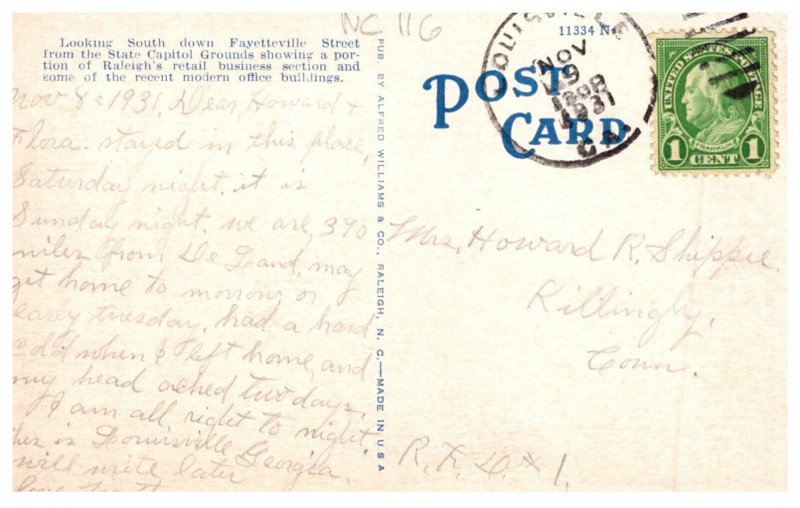 NC 116
Looking South down Fayetteville Street
from the State Capitol Grounds showing a por-
tion of Raleigh's retail business section and
some of the recent modern office buildings.
11334 N
POST
CARD
LOUISVILLE
NOV
9
1931
GA.
UNITED STATES POSTAGE
FRANKLIN
1 CENT 1
PUB. BY ALFRED WILLIAMS & CO., RALEIGH, N. C.—MADE IN U S A
Nov 8 = 1931, Dear Howard +
Flora. stayed in this place,
Saturday night. it is
Sunday night. we are, 390
miles from De Land, may
get home to morrow, or
early tuesday, had a hard
cold when I left home, and
my head ached two days,
I am all right to night.
this is Louisville Georgia.
will write later
Mrs. Howard R. Shippee.
Killingly,
Conn.
R. F. D. # 1.